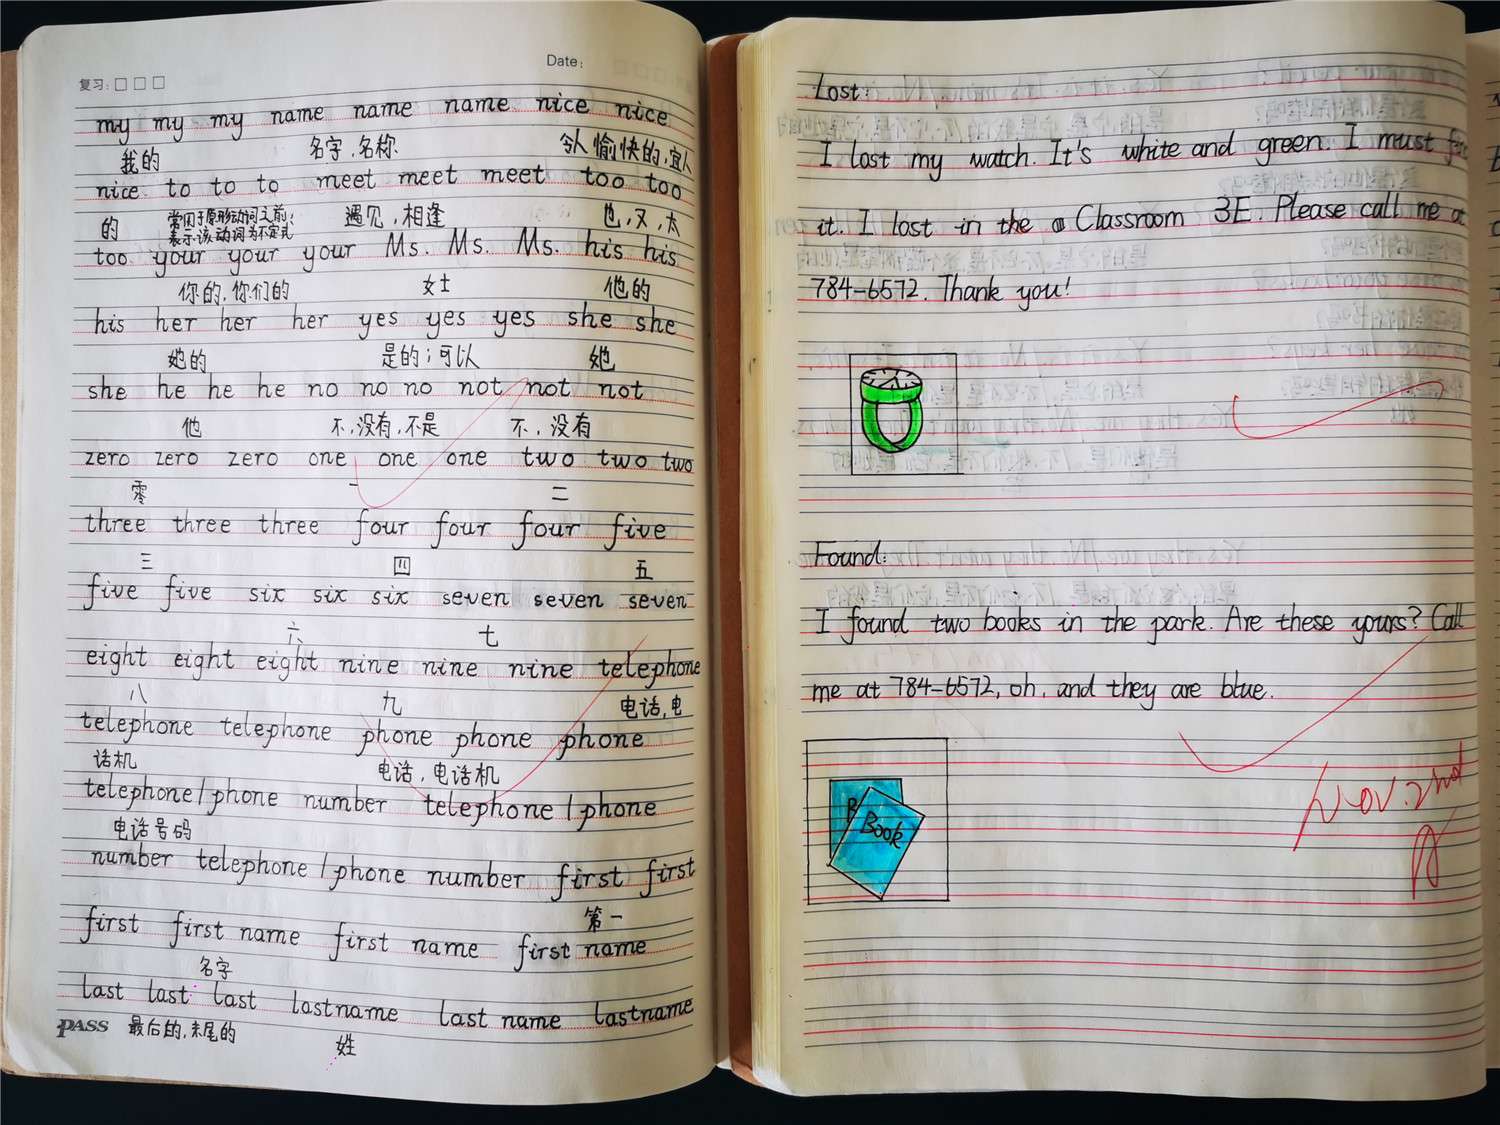 复习: □ □ □
Date:
my my my name name name nice nice
我的 名字,名称 令人愉快的,宜人
nice to to to meet meet meet too too
的 常用于原形动词之前, 遇见,相逢 也,又,太
表示该动词为不定式
too your your your Ms. Ms. Ms. his his
你的,你们的 女士 他的
his her her her yes yes yes she she
她的 是的;可以 她
she he he he no no no not not not
他 不,没有,不是 不,没有
zero zero zero one one one two two two
零 一 二
three three three four four four five
三 四 五
five five six six six seven seven seven
六 七
eight eight eight nine nine nine telephone
八 九 电话,电
telephone telephone phone phone phone
话机 电话,电话机
telephone/phone number telephone/phone
电话号码
number telephone/phone number first first
第一
first first name first name first name
名字
last last last lastname last name lastname
PASS 最后的,末尾的 姓
Lost:
I lost my watch. It's white and green. I must
it. I lost in the Classroom 3E. Please call me at
784-6572. Thank you!
Found:
I found two books in the park. Are these yours? Call
me at 784-6572, oh, and they are blue.
Book
Nov. 2nd
A